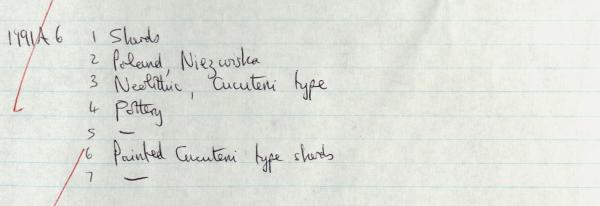 1991A6 1 Sherds
2 Poland, Niezwiska
3 Neolithic, Cucuteni type
4 Pottery
5 —
6 Painted Cucuteni type sherds
7 —